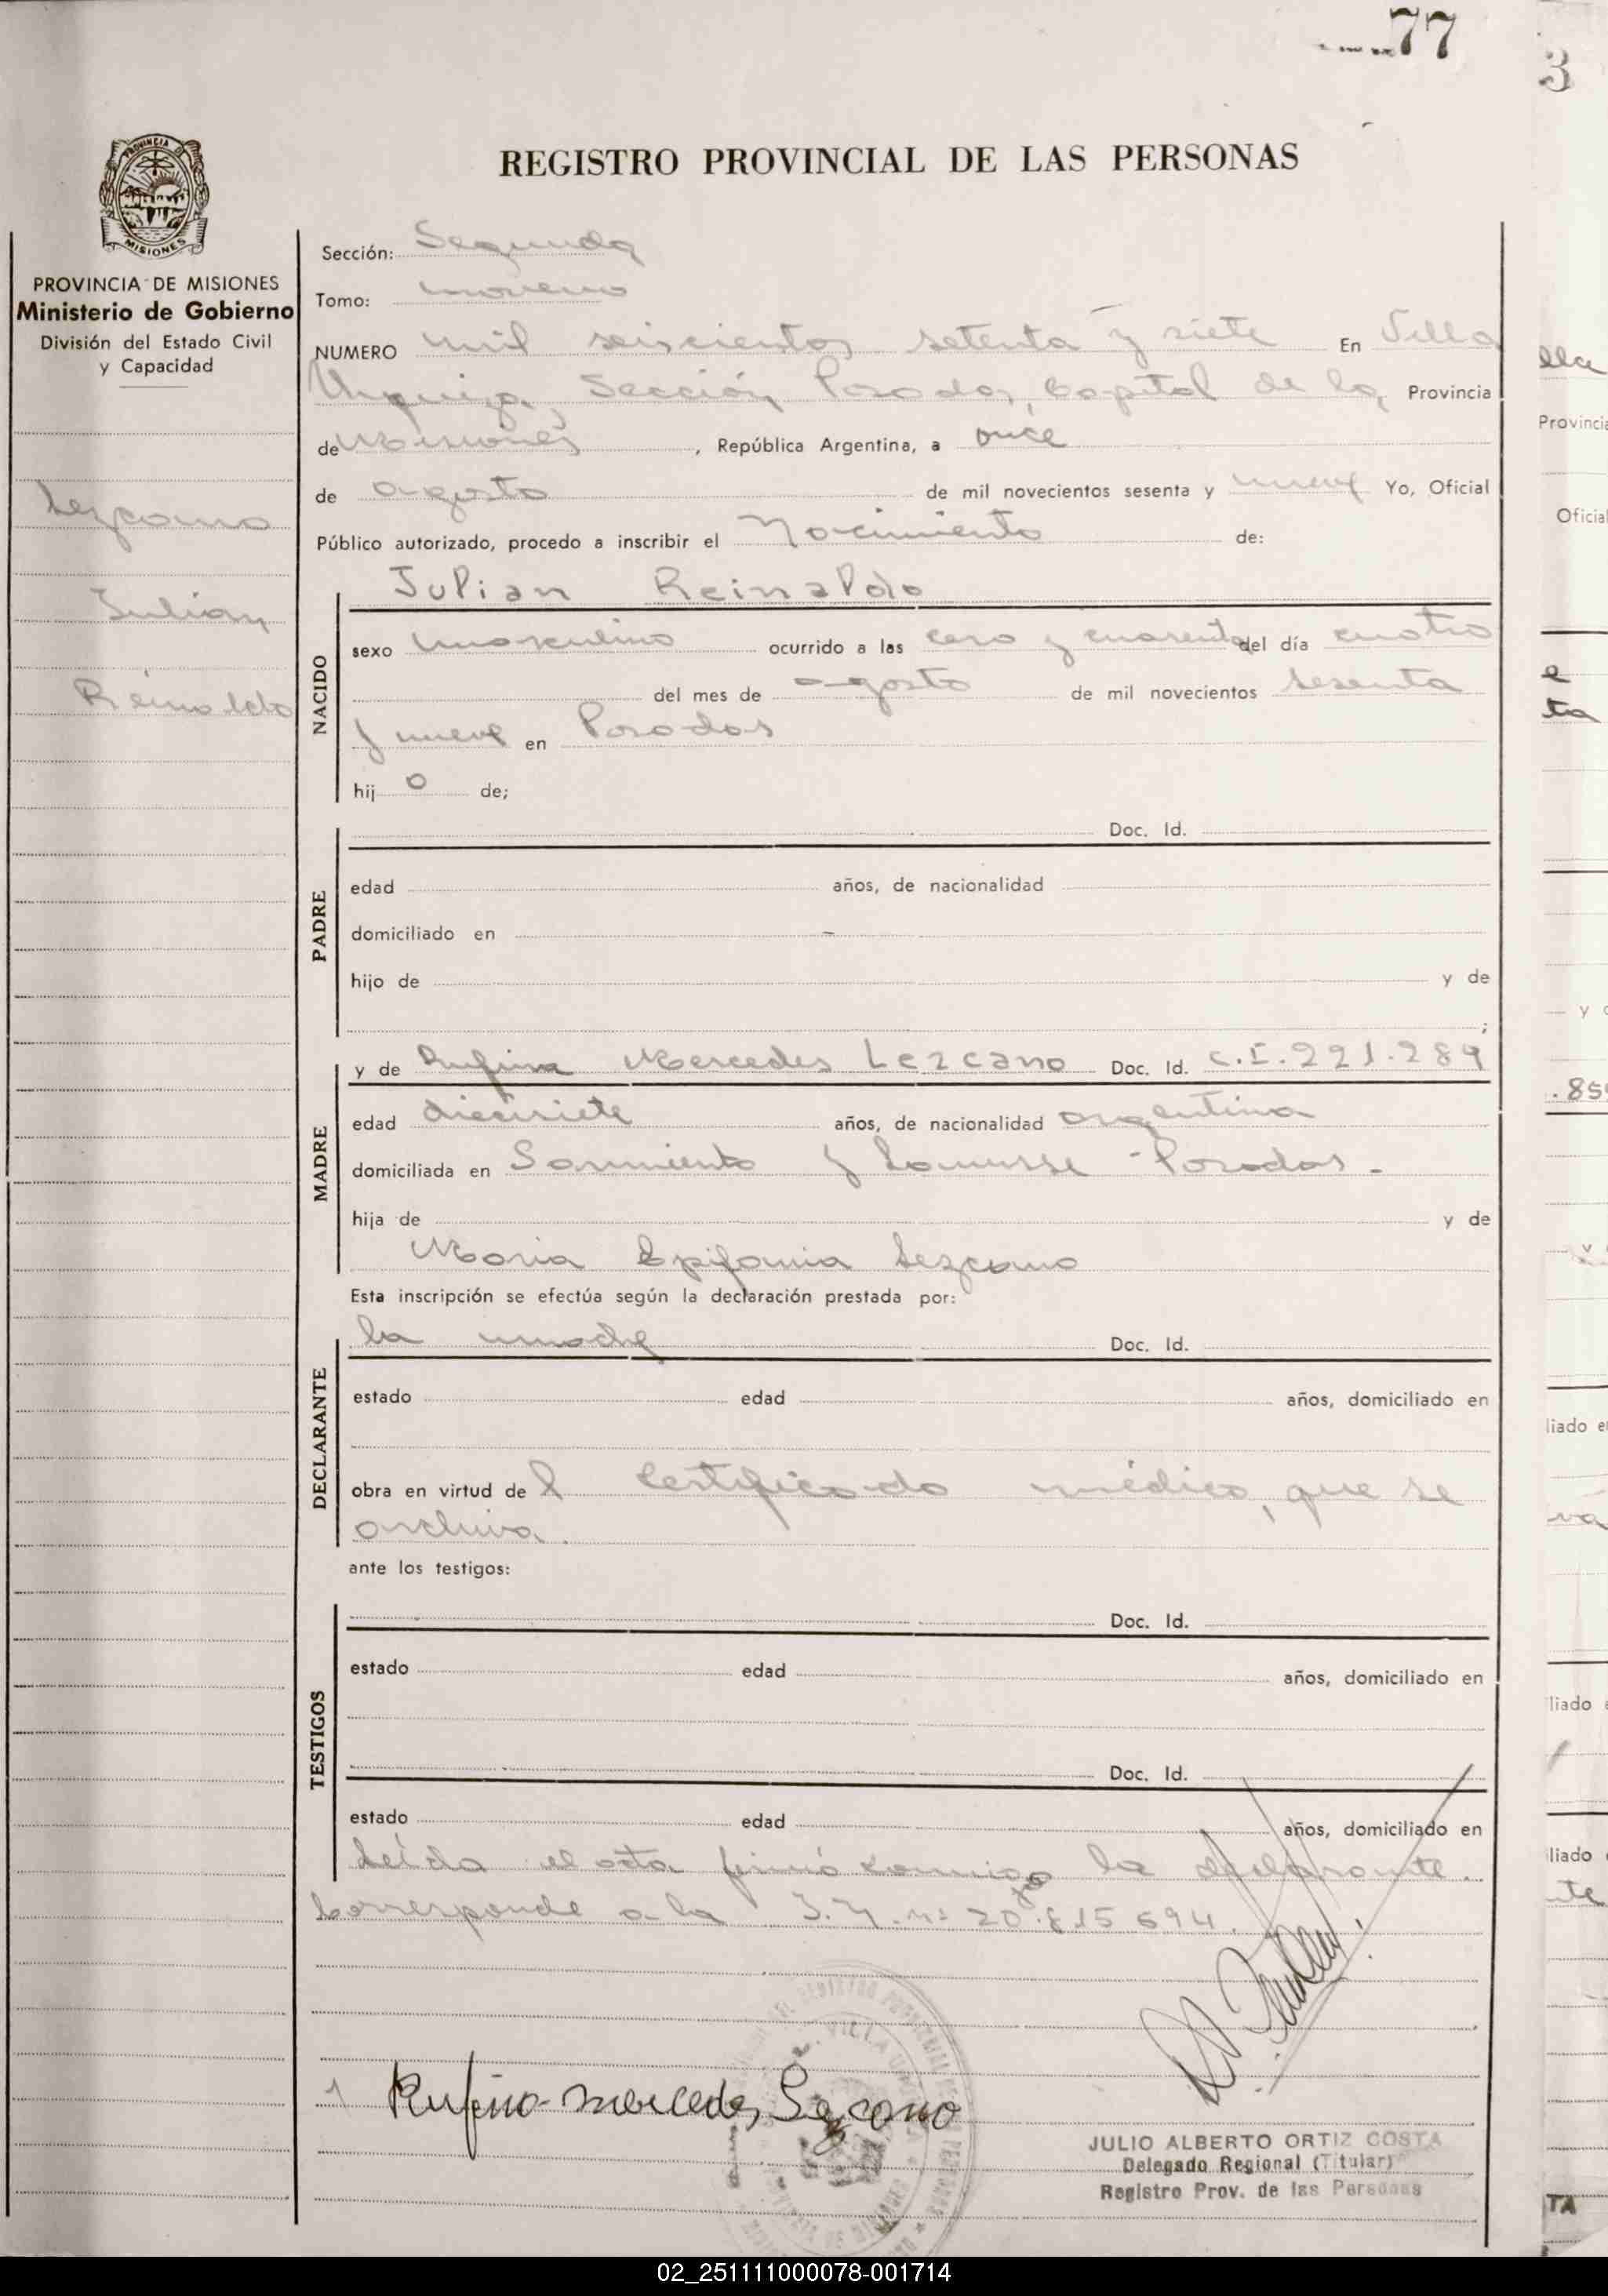 77
3
REGISTRO PROVINCIAL DE LAS PERSONAS
PROVINCIA DE MISIONES
MISIONES
PROVINCIA DE MISIONES
Ministerio de Gobierno
División del Estado Civil
y Capacidad
Lezcano
Julián
Reinaldo
Sección: Segunda
Tomo: noveno
NUMERO mil seiscientos setenta y siete En Villa
Urquiza, Sección Posadas, Capital de la Provincia
de Misiones, República Argentina, a once
de agosto de mil novecientos sesenta y nueve Yo, Oficial
Público autorizado, procedo a inscribir el Nacimiento de:
Julian Reinaldo
NACIDO
sexo masculino ocurrido a las cero y cuarenta del día cuatro
del mes de agosto de mil novecientos sesenta
y nueve en Posadas
hij o de;
PADRE
Doc. Id.
edad años, de nacionalidad
domiciliado en -
hijo de y de
;
MADRE
y de Rufina Mercedes Lezcano Doc. Id. C.I. 221.289
edad diecisiete años, de nacionalidad argentina
domiciliada en Sarmiento y - Posadas.-
hija de y de
Maria Epifania Lezcano
Esta inscripción se efectúa según la declaración prestada por:
DECLARANTE
la madre Doc. Id.
estado edad años, domiciliado en
obra en virtud de l certificado médico, que se
archiva.
ante los testigos:
TESTIGOS
Doc. Id.
estado edad años, domiciliado en
Doc. Id.
estado edad años, domiciliado en
Leída el acta firmó conmigo la declarante.
Corresponde a la nº 20.815.694.
Rufina mercedes Lezcano
JULIO ALBERTO ORTIZ COSTA
Delegado Regional (Titular)
Registro Prov. de las Personas
02_251111000078-001714